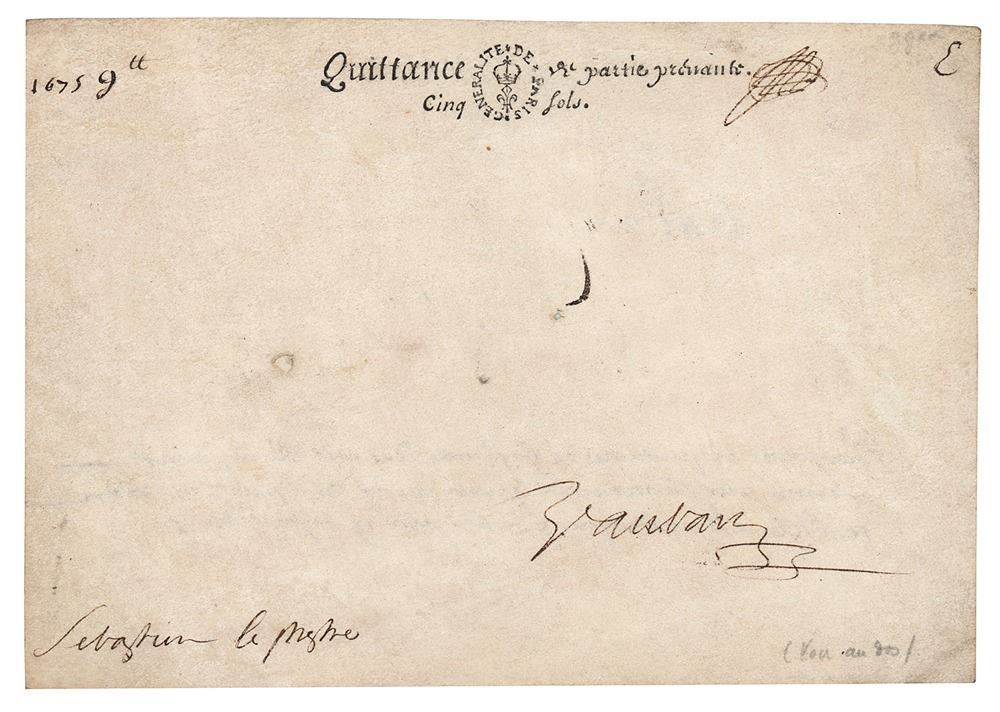 1675 9 tt Quittance de partie prenante. E
GENERALITE DE PARIS
Cinq sols.
Vauban
Sebastien le prestre
(Voir au dos)